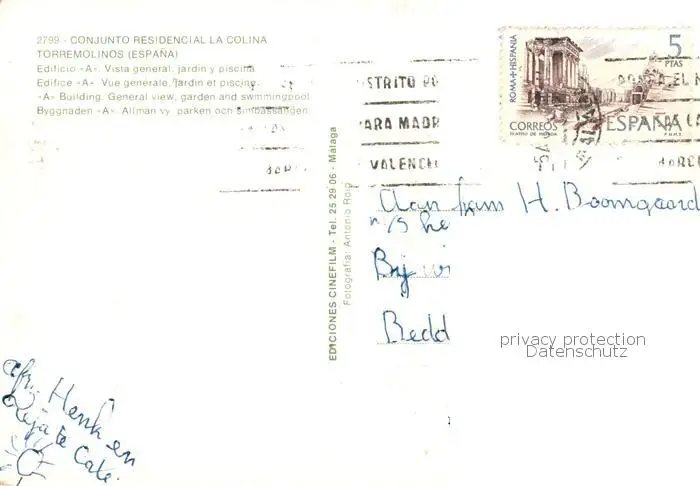 2799 - CONJUNTO RESIDENCIAL LA COLINA
TORREMOLINOS (ESPAÑA)
Edificio «A». Vista general, jardín y piscina
Edifice «A». Vue generale, jardin et piscine
«A» Building. General view, garden and swimmingpool
Byggnaden «A». Allmän vy, parken och simbassängen
EDICIONES CINEFILM - Tel. 25 29 06 - Málaga
Fotografía: Antonio Roig
ROMA+HISPANIA
5
PTAS
CORREOS
TEATRO DE MERIDA
ESPAÑA
F.N.M.T.
STRITO PO
ARA MADR
VALENCI
Aan fam H. Boomgaard
Bij
Bedd
privacy protection
Datenschutz
afz. Henk en